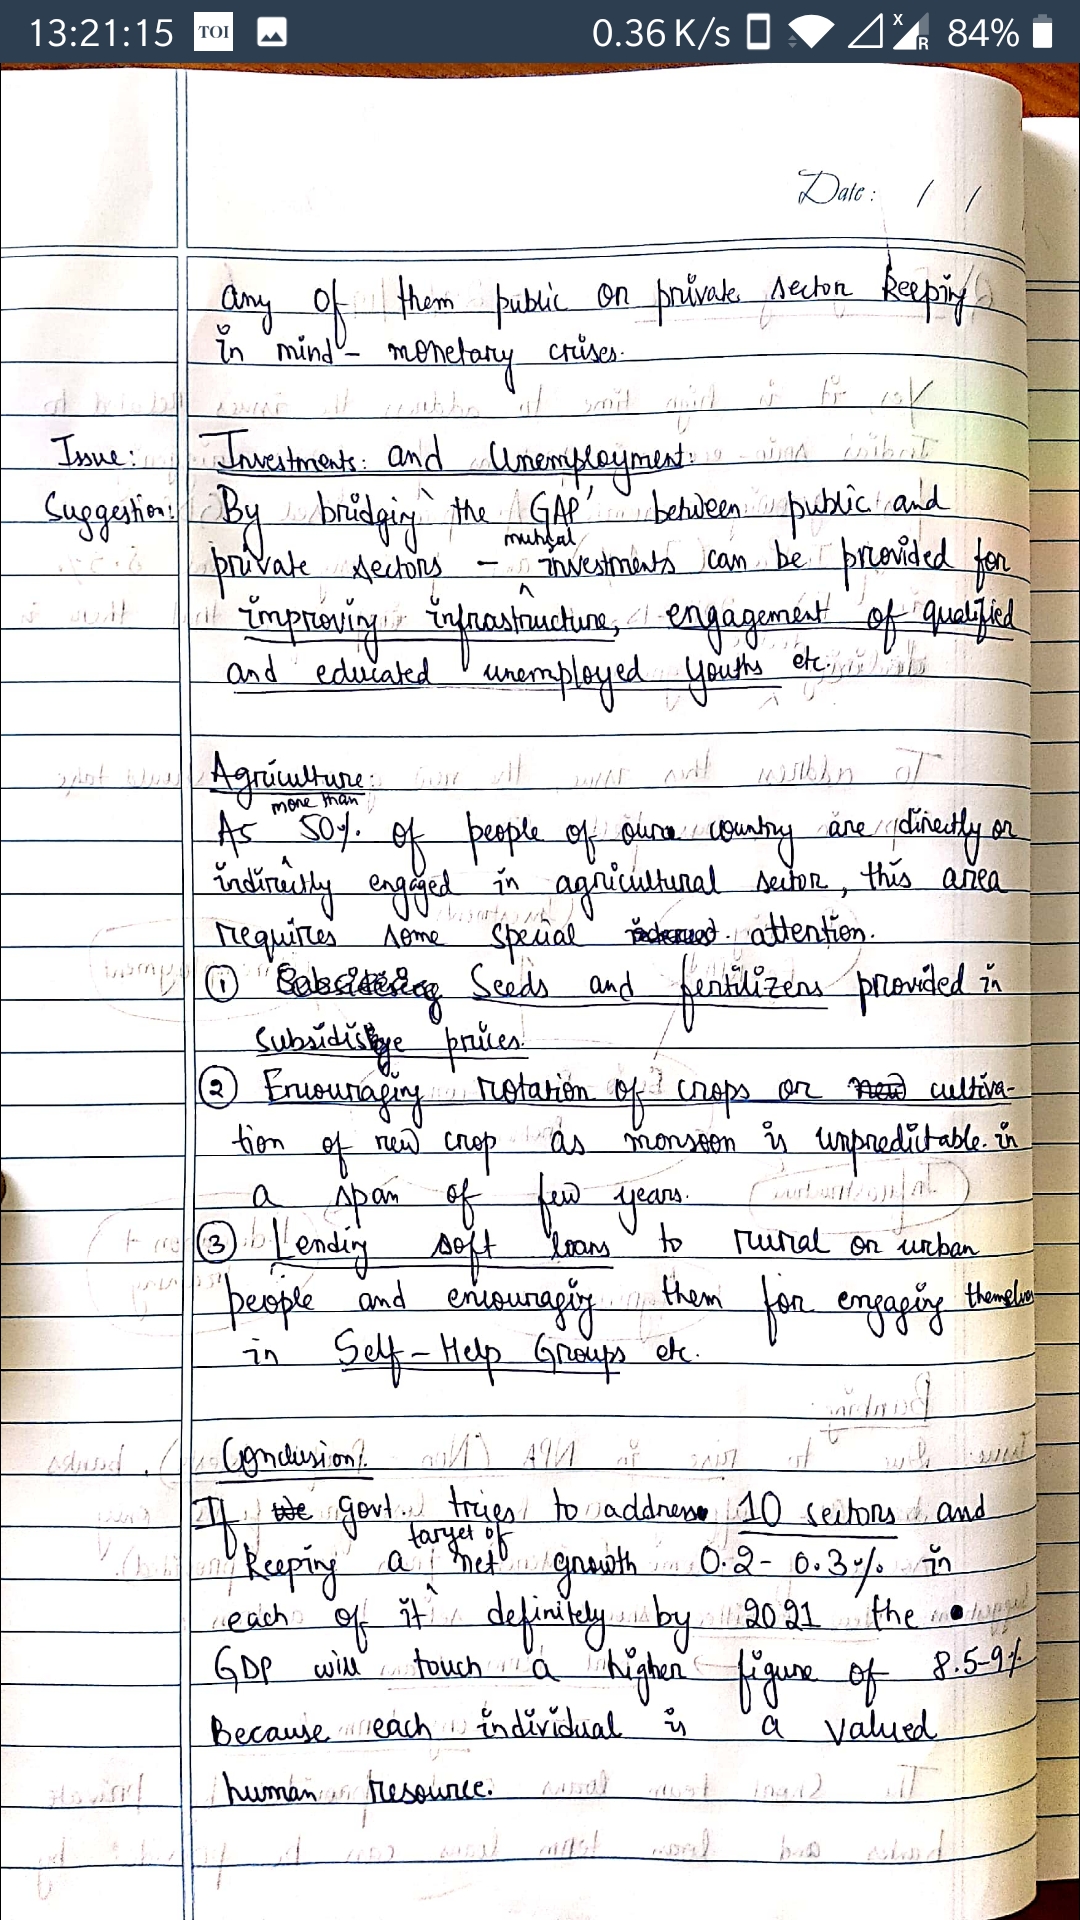 13:21:15 TOI 0.36 K/s X R 84%
Date: / /
any of them public or private sector keeping
in mind - monetary crises.
Issue: Investments and Unemployment:
Suggestion: By bridging the GAP between public and
private sectors - mutual investments can be provided for
improving infrastructure, engagement of qualified
and educated unemployed youths etc.
Agriculture:
As more than 50% of people of our country are directly or
indirectly engaged in agricultural sector, this area
requires some special attention.
① Seeds and fertilizers provided in
prices.
② Encouraging rotation of crops or new cultiva-
tion of new crop as monsoon is unpredictable in
a span of few years.
③ Lending soft loans to rural or urban
people and encouraging them for engaging themselves
in Self-Help Groups etc.
Conclusion:
If We govt. tries to address 10 sectors and
keeping a target of net growth 0.2- 0.3% in
each of it definitely by 2021 the
GDP will touch a higher figure of 8.5-9%
Because each individual is a valued
human resource.